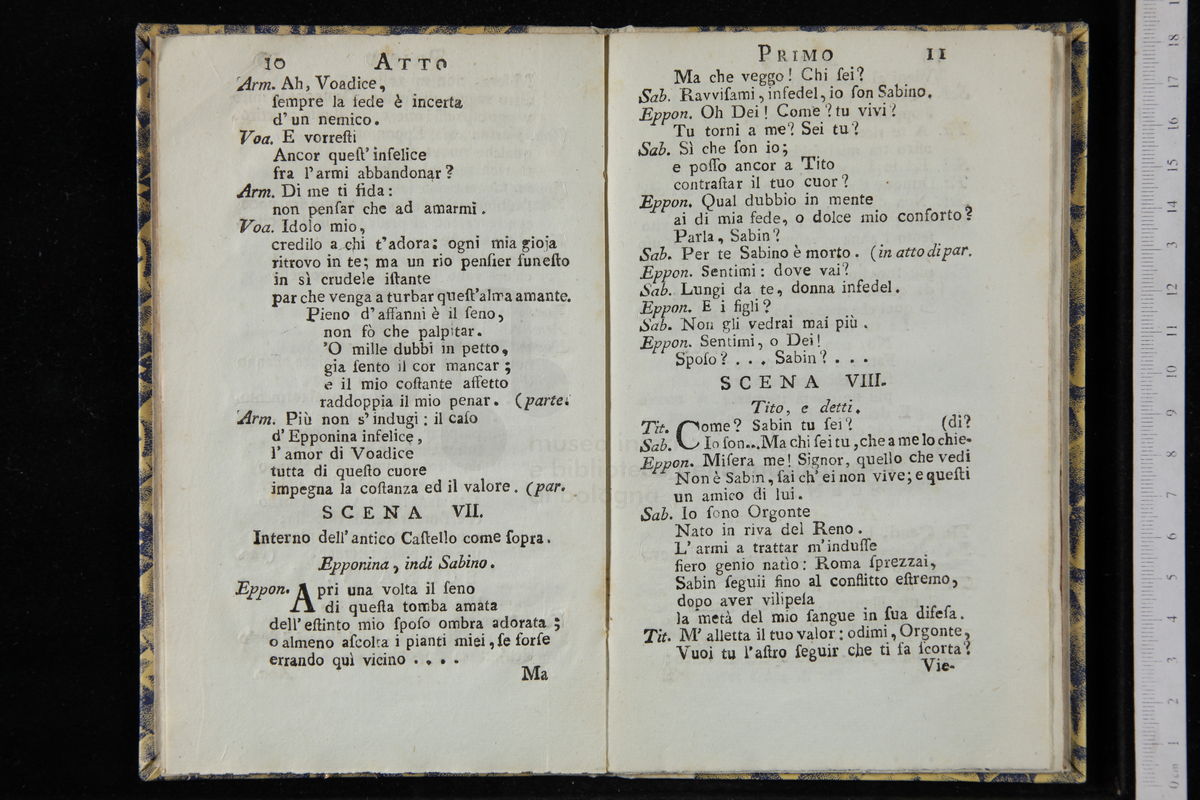 10 ATTO
Arm. Ah, Voadice,
ſempre la fede è incerta
d'un nemico.
Voa. E vorreſti
Ancor queſt'infelice
fra l'armi abbandonar?
Arm. Di me ti fida:
non penſar che ad amarmi.
Voa. Idolo mio,
credilo a chi t'adora: ogni mia gioja
ritrovo in te; ma un rio penſier funeſto
in sì crudele iſtante
par che venga a turbar queſt'alma amante.
Pieno d'affanni è il ſeno,
non fò che palpitar.
'O mille dubbi in petto,
gia ſento il cor mancar;
e il mio coſtante affetto
raddoppia il mio penar. (parte.
Arm. Più non s'indugi: il caſo
d'Epponina infelice,
l'amor di Voadice
tutta di queſto cuore
impegna la coſtanza ed il valore. (par.
SCENA VII.
Interno dell'antico Caſtello come ſopra.
Epponina, indi Sabino.
Eppon. Apri una volta il ſeno
di queſta tomba amata
dell'eſtinto mio ſpoſo ombra adorata;
o almeno aſcolta i pianti miei, ſe forſe
errando quì vicino ....
Ma
PRIMO 11
Ma che veggo! Chi ſei?
Sab. Ravviſami, infedel, io ſon Sabino.
Eppon. Oh Dei! Come? tu vivi?
Tu torni a me? Sei tu?
Sab. Sì che ſon io;
e poſſo ancor a Tito
contraſtar il tuo cuor?
Eppon. Qual dubbio in mente
ai di mia fede, o dolce mio conforto?
Parla, Sabin?
Sab. Per te Sabino è morto. (in atto di par.
Eppon. Sentimi: dove vai?
Sab. Lungi da te, donna infedel.
Eppon. E i figli?
Sab. Non gli vedrai mai più.
Eppon. Sentimi, o Dei!
Spoſo? ... Sabin? ...
SCENA VIII.
Tito, e detti.
Tit. Come? Sabin tu ſei? (di?
Sab. Io ſon... Ma chi ſei tu, che a me lo chie-
Eppon. Miſera me! Signor, quello che vedi
Non è Sabin, ſai ch'ei non vive; e queſti
un amico di lui.
Sab. Io ſono Orgonte
Nato in riva del Reno.
L'armi a trattar m'induſſe
fiero genio natìo: Roma ſprezzai,
Sabin ſeguii fino al conflitto eſtremo,
dopo aver vilipeſa
la metà del mio ſangue in ſua difeſa.
Tit. M'alletta il tuo valor: odimi, Orgonte,
Vuoi tu l'aſtro ſeguir che ti fa ſcorta?
Vie-